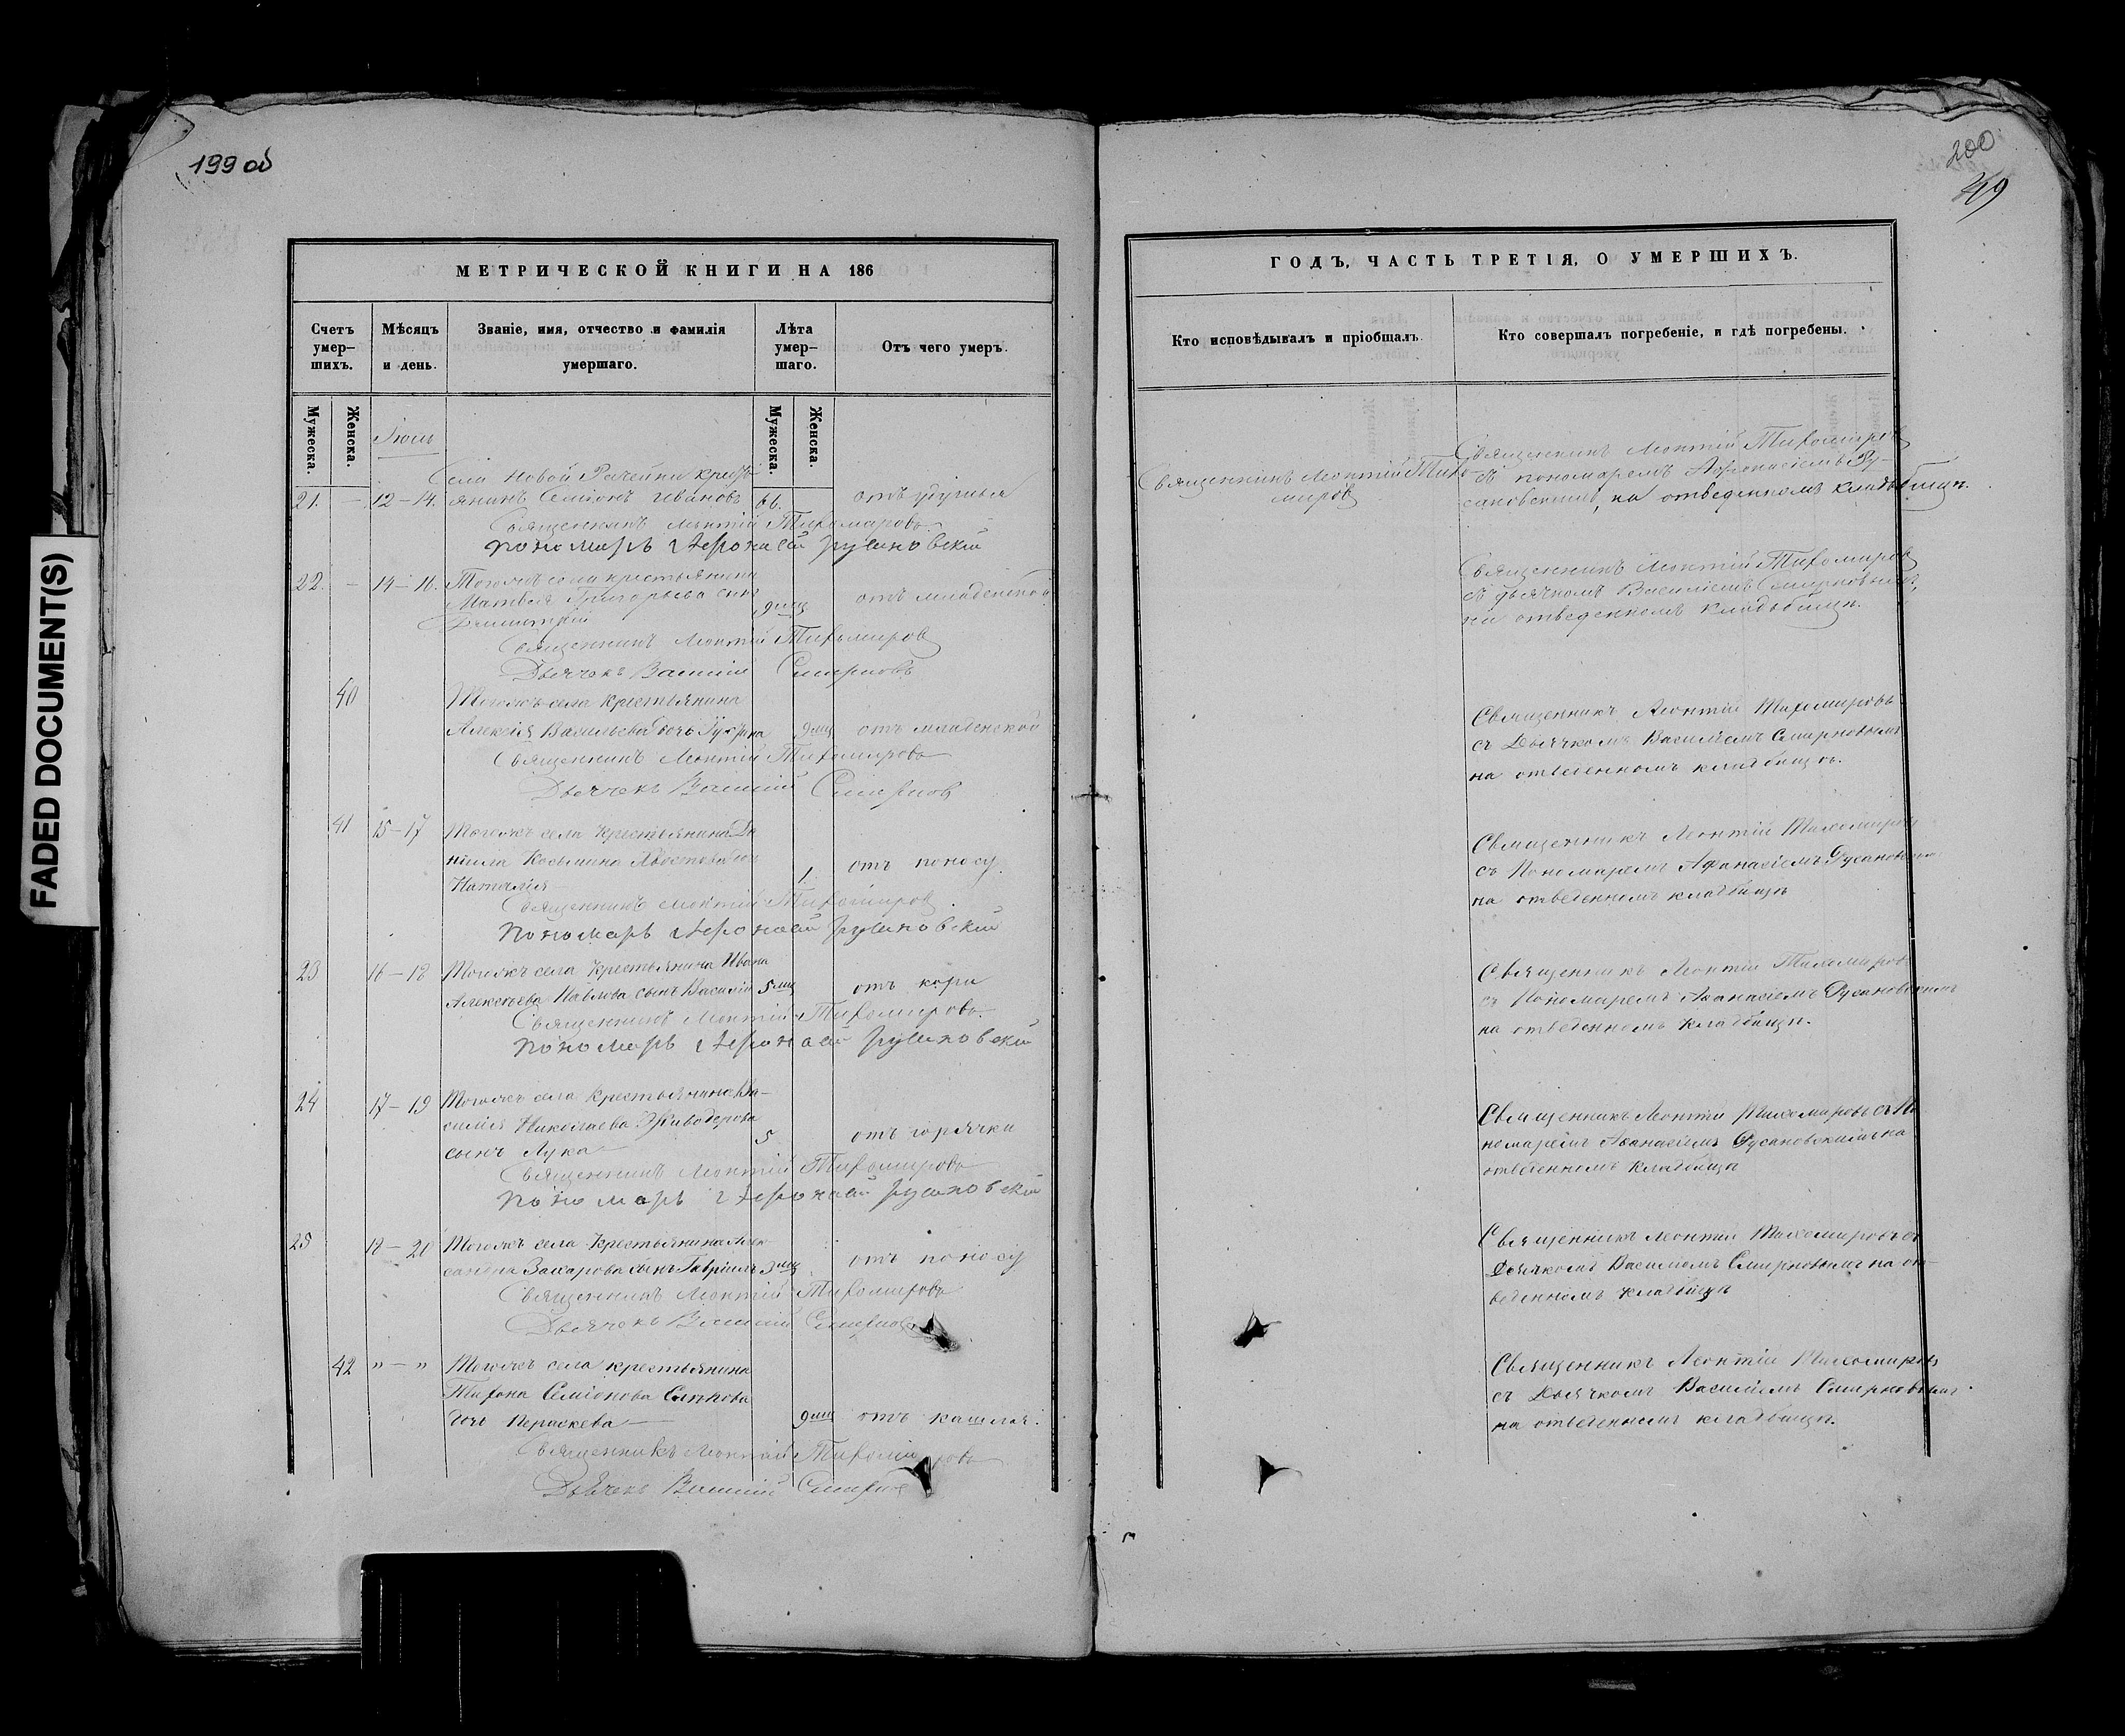 FADED DOCUMENT(S)
199 об
МЕТРИЧЕСКОЙ КНИГИ НА 186
Счетъ умер-шихъ.
Мѣсяцъ и день.
Званіе, имя, отчество и фамилія умершаго.
Лѣта умер-шаго.
Отъ чего умеръ.
Мужеска.
Женска.
Мужеска.
Женска.
Іюль
Села Новой Рачейки крест-
21. — 12 – 14. янинъ Семіонъ Ивановъ 66. отъ удушья
Священникъ Леонтій Тихомировъ
Пономарь Афонасій Русановскій
22. — 14 – 16. Тогожъ села крестьянина
Матвея Григорьева сынъ 9 мц отъ младенской
Димитрій
Священникъ Леонтій Тихомиров
Дьячекъ Василій Смирновъ
40 Тогожъ села крестьянина
Алексія Васильева дочь 9 мц отъ младенской
Священникъ Леонтій Тихомировъ
Дьячекъ Василій Смирнов
41 15 – 17 Тогожъ села крестьянина Да
ніила Косьмина дочь 1 отъ поносу.
Наталія
Священникъ Леонтій Тихомиров
Пономарь Афонасій Русановскій
23 16 – 18 Тогожъ села крестьянина Ивана
Алексѣева Павлова сынъ Василій 5 мц отъ кори
Священникъ Леонтій Тихомировъ
Пономарь Афонасій Русановскій
24 17 – 19 Тогожъ села крестьянина Ва-
силія Николаева Живодерова
сынъ Лука 5 отъ горячки
Священникъ Леонтій Тихомировъ
Пономарь Афонасій Русановскій
25 18 – 20 Тогожъ села крестьянина Алек-
сандра Захарова сынъ Гавріилъ 3 мц отъ поносу
Священникъ Леонтій Тихомировъ
Дьячекъ Василій Смирнов
42 " – " Тогожъ села крестьянина
Тихона Семіонова
дочь Параскева 9 мц отъ кашля.
Священникъ Леонтій Тихомировъ
Дьячекъ Василій Смирнов
200
ГОДЪ, ЧАСТЬ ТРЕТІЯ, О УМЕРШИХЪ.
Кто исповѣдывалъ и пріобщалъ.
Кто совершалъ погребеніе, и гдѣ погребены.
Священникъ Леонтій Тихо-
миров
Священникъ Леонтій Тихомиров
съ пономаремъ Афонасіемъ Ру-
сановскимъ, на отведенномъ кладбищѣ.
Священникъ Леонтій Тихомиров
съ дьячкомъ Василіемъ Смирновымъ,
на отведенномъ кладьбищѣ.
Священникъ Леонтій Тихомировъ
съ Дьячкомъ Василіемъ Смирновымъ
на отведенномъ кладбищѣ.
Священникъ Леонтій Тихомиров
съ Пономаремъ Афанасіемъ Русановскимъ
на отведенномъ кладбищѣ
Священникъ Леонтій Тихомиров
съ Пономаремъ Афанасіемъ Русановскимъ
на отведенномъ кладбищѣ.
Священникъ Леонтій Тихомировъ съ По
номаремъ Афанасіемъ Русановскимъ на
отведенномъ кладбищѣ
Священникъ Леонтій Тихомировъ съ
Дьячкомъ Василіемъ Смирновымъ на от-
веденномъ кладбищѣ
Священникъ Леонтій Тихомировъ
съ Дьячкомъ Василіемъ Смирновымъ
на отведенномъ кладбищѣ.